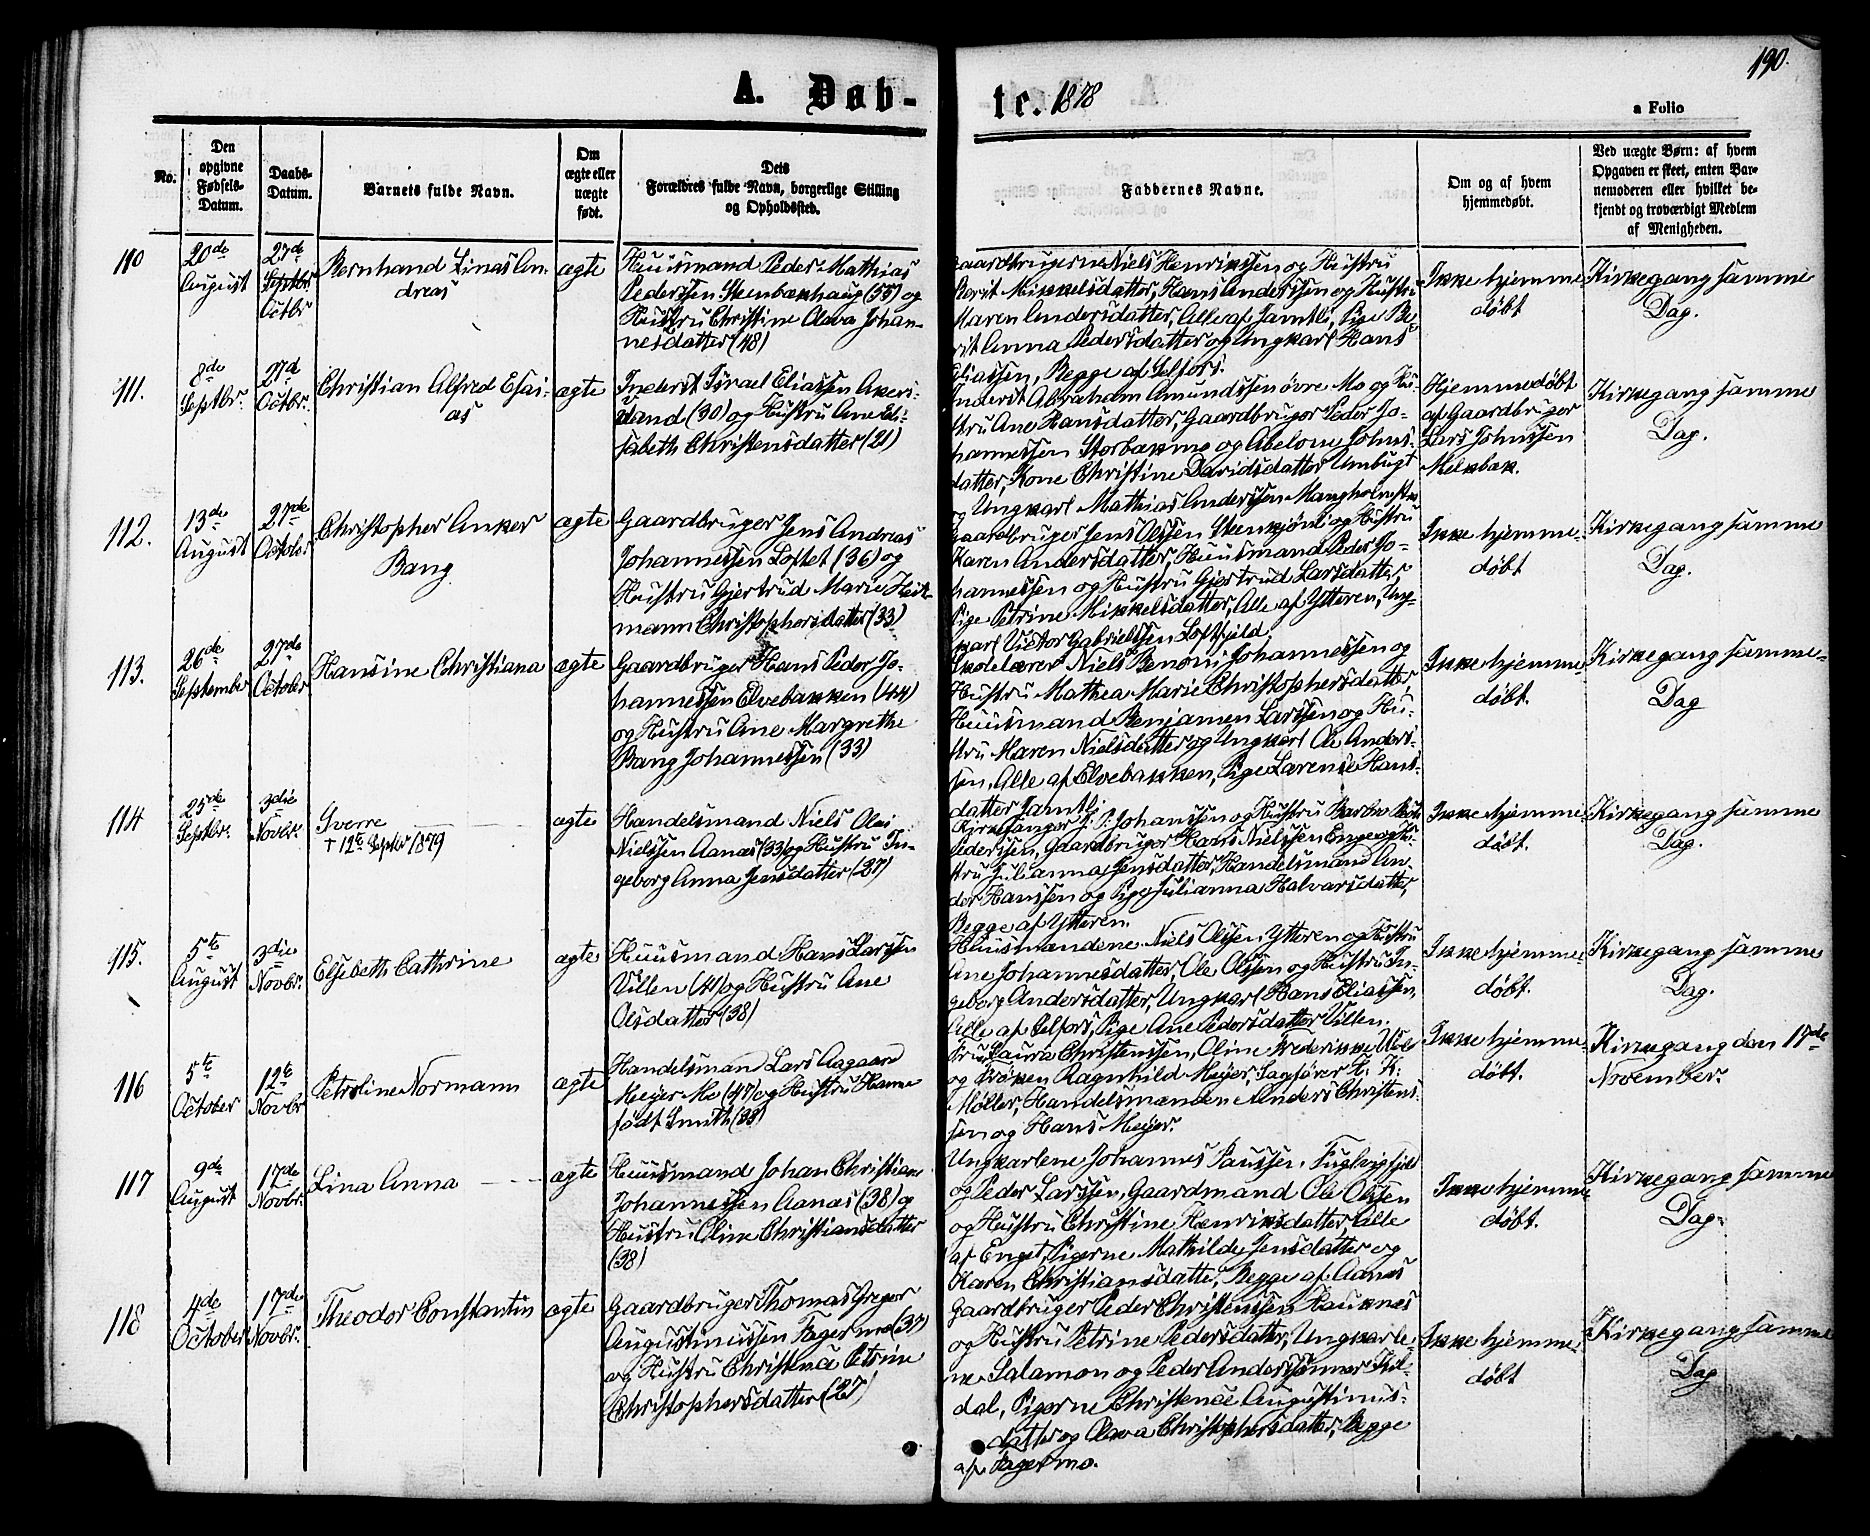 190.
A. Døb-
te. 1878
a Folio
No.
Den
opgivne
Fødsels-
Datum.
Daabs-
Datum.
Barnets fulde Navn.
Om
ægte eller
uægte
født.
Dets
Forældres fulde Navn, borgerlige Stilling
og Opholdssted.
Faddernes Navne.
Om og af hvem
hjemmedøbt.
Ved uægte Børn: af hvem
Opgaven er skeet, enten Bar-
nemoderen eller hvilket be-
kjendt og troværdigt Medlem
af Menigheden.
110
20de
August
27de
Septbr
Octbr
Bernhand Linas An-
dreas
ægte
Huusmand Peder Mathias
Pederssen Steenbækhaug (55) og
Hustru Christine Olava Johan-
nesdatter (48)
Gaardbrugerne Niels Henrikssen og Hustru
Berit Mikkelsdatter, Hans Anderssen og Hustru
Maren Andersdatter, Alle af Jamtli, Pige Be-
rit Anna Pedersdatter og Ungkarl Hans
Eliassen, Begge af Selfors.
Ikke hjemme-
døbt
Kirkegang samme
Dag.
111.
8de
Septbr.
27d
Octbr.
Christian Alfred Esai-
as
ægte
Inderst Israel Eliassen Akers-
sand (30) og Hustru Ane Eli-
sabeth Christensdatter (21)
Inderst Abraham Amundssen øvre Mo og Hu-
stru Ane Hansdatter, Gaardbruger Peder Jo-
hannessen Storbakmo og Abelone Johns-
datter, Kone Christine Davidsdatter Umbugt
og Ungkarl Mathias Anderssen Mangholmstrø
Hjemmedøbt
af Gaardbruger
Lars Johnssen
Melkbæk.
Kirkegang samme
Dag.
112.
13de
August
27de
October
Christopher Anker
Bang
ægte
Gaardbruger Jens Andreas
Johannessen Loftet (36) og
Hustru Gjertrud Marie Heit-
mann Christophersdatter (33)
Gaardbruger Jens Olssen Steenkjønli og Hustru
Karen Andersdatter, Huusmand Peder Jo-
hannessen og Hustru Gjertrud Larsdatter,
Pige Petrine Mikkelsdatter, Alle af Ytteren, Ung-
karl Victor Gabrielssen Loftfjeld.
Ikke hjemme-
døbt
Kirkegang samme
Dag.
113.
26de
September
27de
October
Hansine Christiana
ægte
Gaardbruger Hans Peder Jo-
hannessen Elvebakken (44)
og Hustru Ane Margrethe
Bang Johannessen (33)
Skolelærer Niels Benoni Johannessen og
Hustru Mathea Marie Christophersdatter,
Huusmand Benjamen Larssen og Hu-
stru Maren Nielsdatter og Ungkarl Ole Anders-
sen, Alle af Elvebakken, Pige Larense Hans-
datter Jamtli.
Ikke hjemme-
døbt.
Kirkegang samme
Dag
114
25de
Septbr.
3die
Novbr.
Sverre
† 12te Septbr 1879
ægte
Handelsmand Niels Olai
Nielssen Aanæs (33) og Hustru In-
geborg Anna Jensdatter (27)
Kirkesanger J. P. Johanssen og Hustru Barbro
Pederssen, Gaardbruger Hans Nielssen Enge og Hu-
stru Julianna Jensdatter, Handelsmand An-
der Hanssen og Pige Julianna Halvarsdatter,
Begge af Ytteren.
Ikke hjemme-
døbt.
Kirkegang samme
Dag.
115.
5te
August
3die
Novbr.
Elsebeth Cathrine
ægte
Huusmand Hans Larssen
Villen (41) og Hustru Ane
Olsdatter (38)
Huusmændene Niels Olssen Ytteren og Hustru
Ane Johannesdatter, Ole Olssen og Hustru In-
geborg Andersdatter, Ungkarl Hans Eliassen,
Alle af Selfors, Pige Ane Pedersdatter Villen.
Ikke hjemme-
døbt.
Kirkegang samme
Dag.
116
5te
October
12te
Novbr
Petroline Normann
ægte
Handelsman Lars Aagaard
Meyer Mo (47) og Hustru Hanna
født Smith (38)
Fru Laura Christenssen, Oline Frederikke
og Frøken Ragnhild Meyer, Sagfører H. K.
Møller, Handelsmændene Anders Christens-
sen og Hans Meyer.
Ikke hjemme-
døbt.
Kirkegang den 17de
November.
117
9de
August
17de
Novbr.
Lina Anna
ægte
Huusmand Johan Christian
Johannessen Aanæs (38) og
Hustru Oline Christiansdatter
(38)
Ungkarlene Johannes Paussen Fuglvigfjeld
og Peder Larssen, Gaardmand Ole Olssen
og Hustru Christine Henriksdatter, Alle
af Enget, Pigerne Mathilde Jensdatter og
Karen Christiansdatter, Begge af Aanæs
Ikke hjemme-
døbt.
Kirkegang samme
Dag.
118
4de
October
17de
Novbr.
Theodor Constantin
ægte
Gaardbruger Thomas Greger
Augustinussen Fagermo (37)
og Hustru Christence Petrine
Christophersdatter (27)
Gaardbruger Peder Christenssen Hauknæs
og Hustru Petrine Pedersdatter, Ungkarle-
ne Salamon og Peder Anderssønner
dal, Pigerne Christence Augustinus-
datter og Olava Christophersdatter, Begge
af Fagermo.
Ikke hjemme-
døbt
Kirkegang samme
Dag